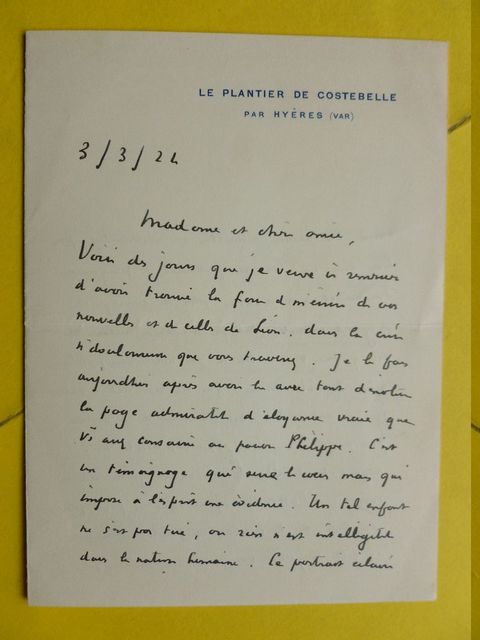 LE PLANTIER DE COSTEBELLE
PAR HYÈRES (VAR)
3/3/24
Madame et chère amie,
Voici des jours que je veux vous remercier
d'avoir trouvé la force de m'écrire de vos
nouvelles et de celles de Léon, dans la crise
si douloureuse que vous traversez. Je le fais
aujourd'hui après avoir lu avec tant d'émotion
la page admirable d'éloquence vraie que
vs avez consacrée au pauvre Philippe. C'est
un témoignage qui serre le cœur mais qui
impose à l'esprit une évidence. Un tel enfant
ne s'est pas tué, ou rien n'est intelligible
dans la nature humaine. Ce portrait